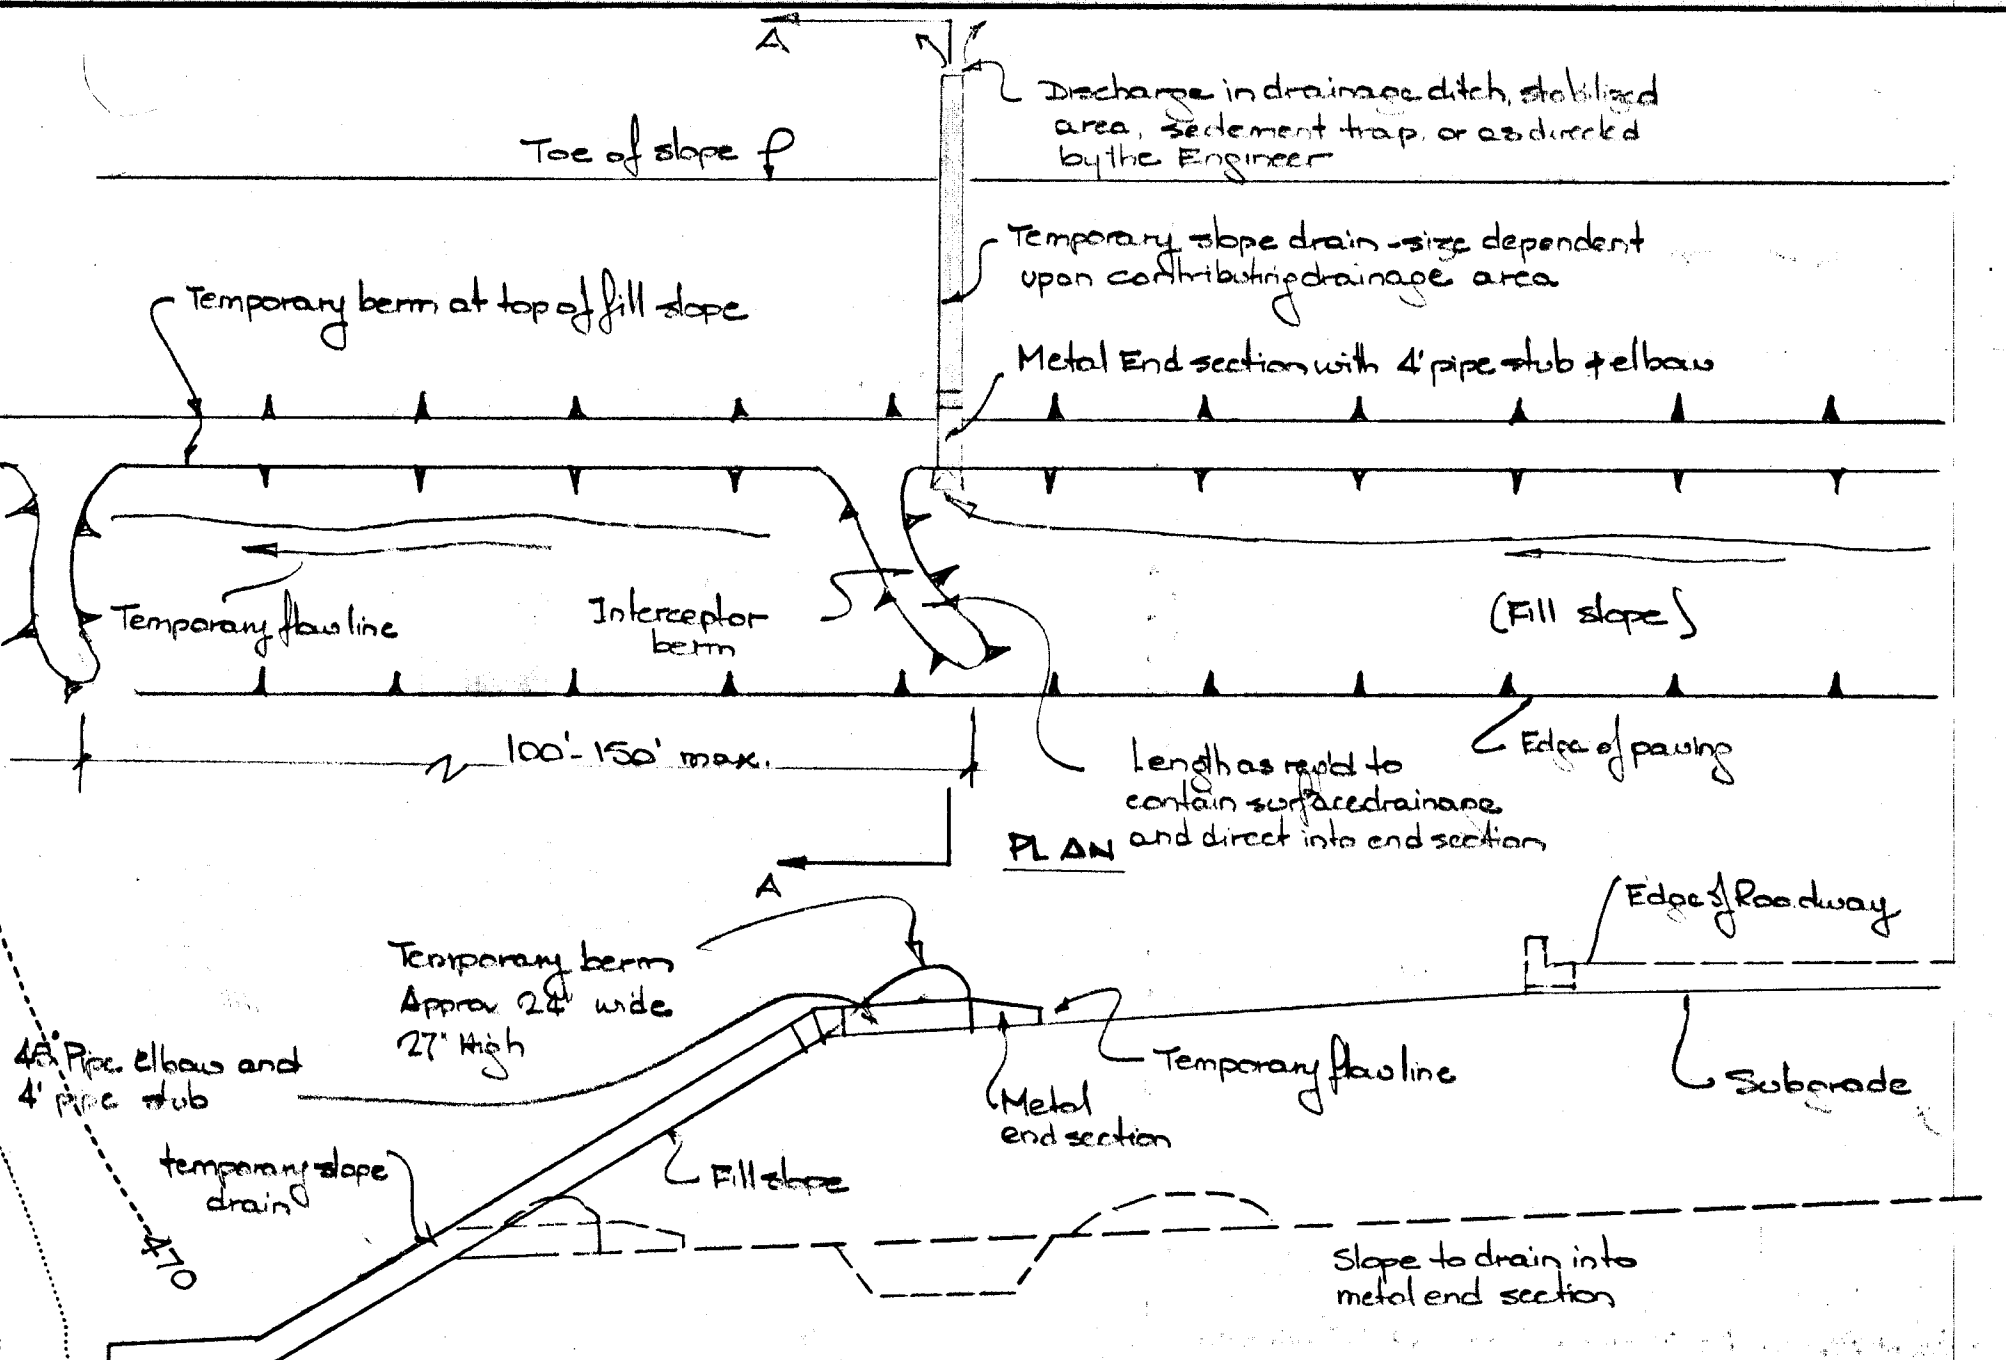 A
Discharge in drainage ditch, stabilized
area, sediment trap, or as directed
by the Engineer
Toe of slope
Temporary slope drain - size dependent
upon contributing drainage area
Temporary berm at top of fill slope
Metal End section with 4' pipe stub & elbow
Temporary flowline
Interceptor
berm
(Fill slope)
Edge of paving
100'-150' max.
Length as req'd to
contain surface drainage
and direct into end section
PLAN
A
Edge of Roadway
Temporary berm
Approx 24" wide
27" High
45° Pipe elbow and
4' pipe stub
Temporary flowline
Metal
end section
Subgrade
temporary slope
drain
Fill slope
470
Slope to drain into
metal end section